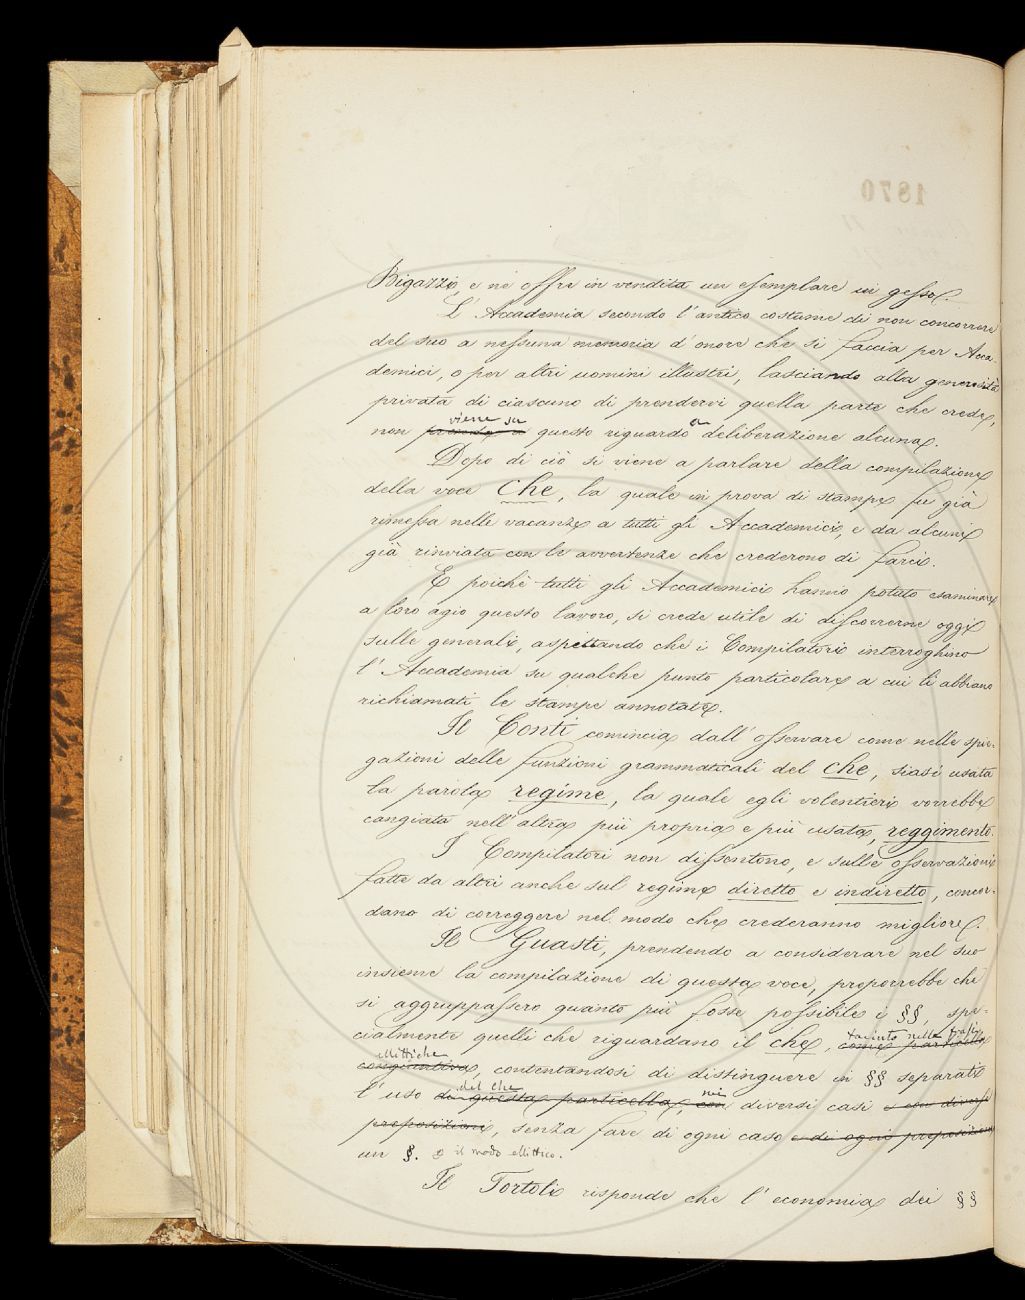 Bigazzi, e ne offre in vendita un esemplare in gesso.
L'Accademia secondo l'antico costume di non concorrere
del suo a nessuna memoria d'onore che si faccia per Acca-
demici, o per altri uomini illustri, lasciando alla generosità
privata di ciascuno di prendervi quella parte che crede,
viene su
non prende a questo riguardo a deliberazione alcuna.
Dopo di ciò si viene a parlare della compilazione
della voce Che, la quale in prova di stampe fu già
rimessa nelle vacanze a tutti gli Accademici, e da alcuni
già rinviata con le avvertenze che crederono di farci.
E poichè tutti gli Accademici hanno potuto esaminare
a loro agio questo lavoro, si crede utile di discorrerne oggi
sulle generali, aspettando che i Compilatori interroghino
l'Accademia su qualche punto particolare a cui li abbiano
richiamati le stampe annotate.
Il Conti comincia dall'osservare come nelle spie-
gazioni delle funzioni grammaticali del che, siasi usata
la parola regime, la quale egli volentieri vorrebbe
cangiata nell'altra più propria e più usata, reggimento.
I Compilatori non dissentono, e sulle osservazioni
fatte da altri anche sul regime diretto e indiretto, concor-
dano di correggere nel modo che crederanno migliore.
Il Guasti, prendendo a considerare nel suo
insieme la compilazione di questa voce, proporrebbe che
si aggruppassero quanto più fosse possibile i §§, spe-
cialmente quelli che riguardano il che, come particella
taciuto nelle frasi
ellittiche
congiuntiva, contentandosi di distinguere in §§ separati
del che nei
l'uso di questa particella, con diversi casi e con diverse
preposizioni, senza fare di ogni caso e di ogni preposizione
un §. o il modo ellittico.
Il Tortoli risponde che l'economia dei §§
1870